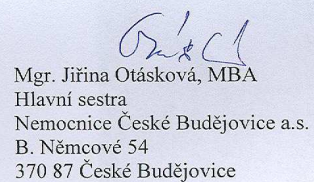 Mgr. Jiřina Otásková, MBA
Hlavní sestra
Nemocnice České Budějovice a.s.
B. Němcové 54
370 87 České Budějovice